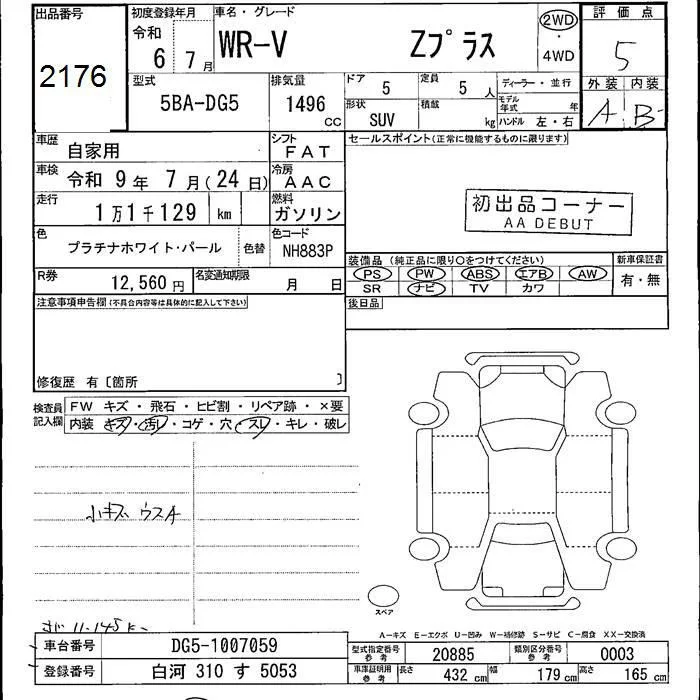 出品番号 初度登録年月 車名・グレード 評価点
2176 令和 6年 7月 WR-V Zプラス 2WD・4WD 5
型式 排気量 ドア 5 定員 5人 ディーラー・並行 外装 内装
5BA-DG5 1496 CC 形状 SUV 積載 kg モデル年式 年 ハンドル 左・右 A B-
車歴 自家用 シフト FAT セールスポイント(正常に機能するものに限ります)
車検 令和 9年 7月(24日) 冷房 AAC
走行 1万1千129 km 燃料 ガソリン
初出品コーナー
AA DEBUT
色 プラチナホワイト・パール 色替 色コード NH883P
装備品 (純正品に限り○をつけてください) 新車保証書
R券 12,560円 名変通知期限 月 日
PS PW ABS エアB AW 有・無
SR ナビ TV カワ
注意事項申告欄(不具合内容等は具体的に記入して下さい) 後日品
修復歴 有〔箇所 〕
検査員記入欄 FW キズ・飛石・ヒビ割・リペア跡・×要
内装 キズ・汚レ・コゲ・穴・スレ・キレ・破レ
小キズ ウスA
スペア
11.145k
A-キズ E-エクボ U-凹み W-補修跡 S-サビ C-腐食 XX-交換済
車台番号 DG5-1007059 型式指定番号 参考 20885 類別区分番号 参考 0003
登録番号 白河 310 す 5053 車庫証明用 参考 長さ 432 cm 幅 179 cm 高さ 165 cm